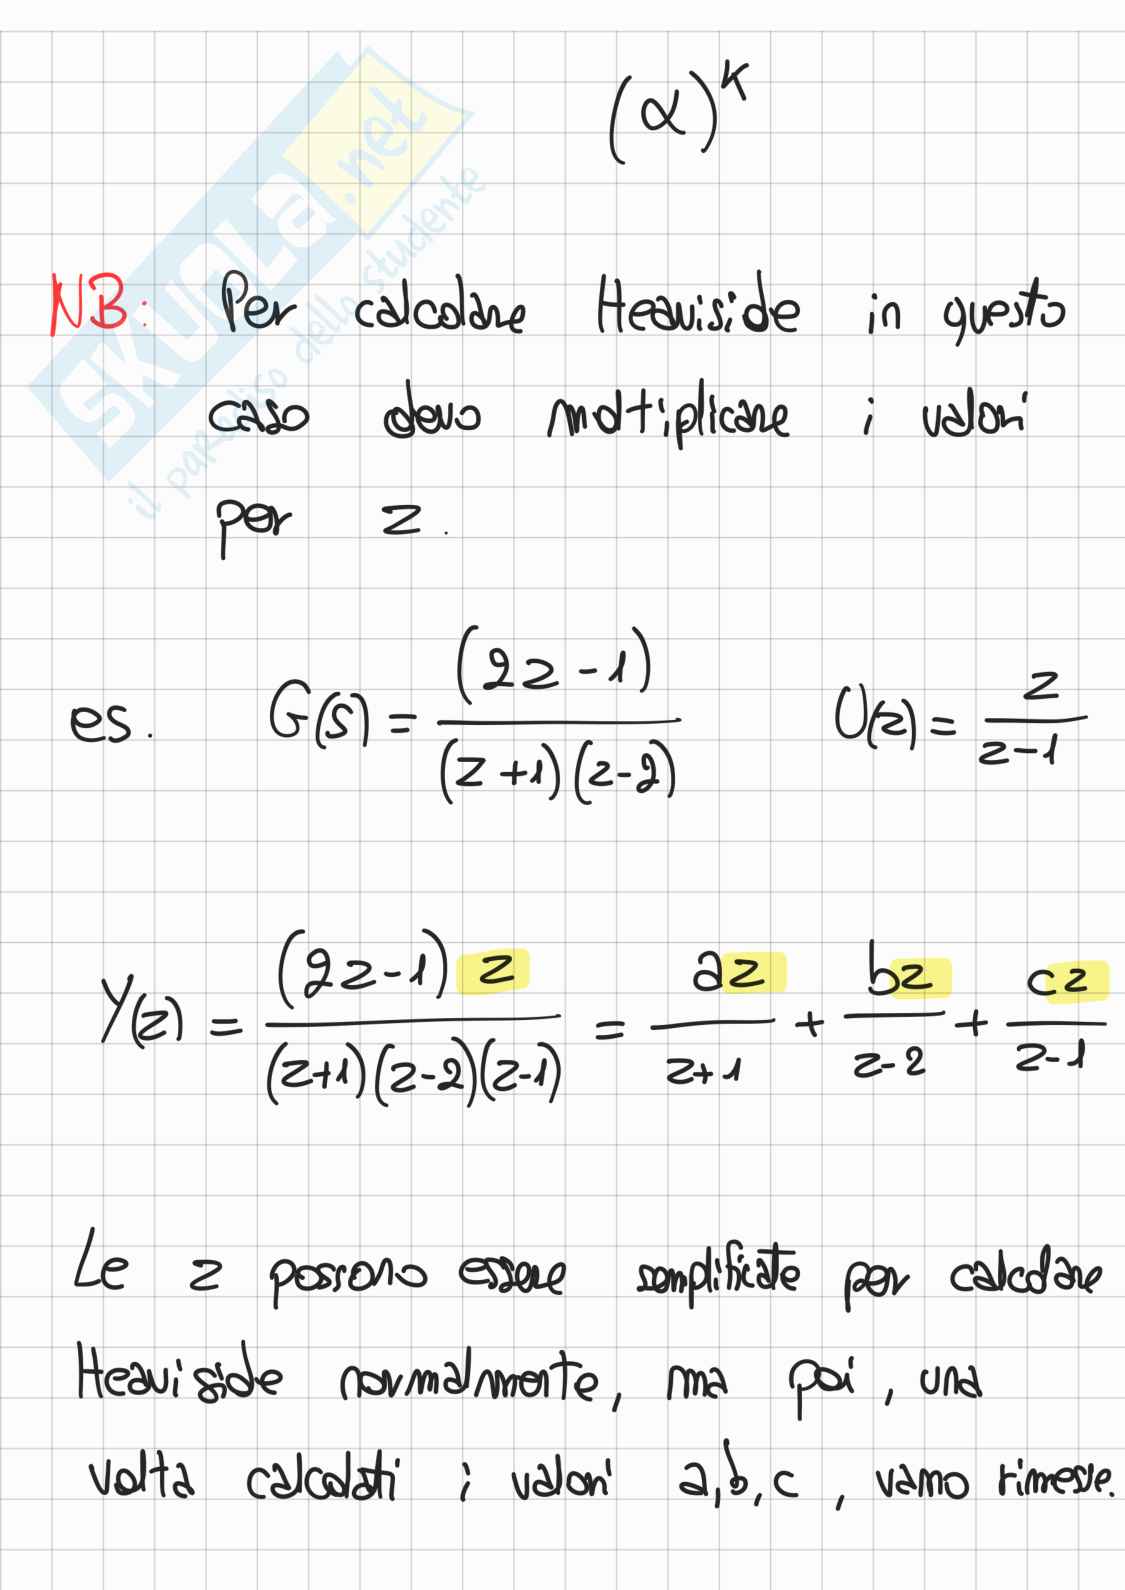 (α)^K
NB: Per calcolare Heaviside in questo
caso devo moltiplicare i valori
per z.
es. G(s) = (2z-1) / (z+1)(z-2) U(z) = z / z-1
Y(z) = (2z-1) z / (z+1)(z-2)(z-1) = az / z+1 + bz / z-2 + cz / z-1
Le z possono essere semplificate per calcolare
Heaviside normalmente, ma poi, una
volta calcolati i valori a, b, c, vanno rimesse.
SKUOLA.net
il paradiso dello studente